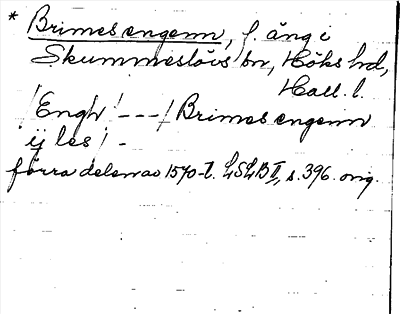 * Brimesengenn, f. äng i
Skummeslövs bn, Höks hd,
Hall. l.
/Engh/ --- / Brimesengenn
ij les/ -
förra delen av 1570-t. LSLB II, s. 396. orig.